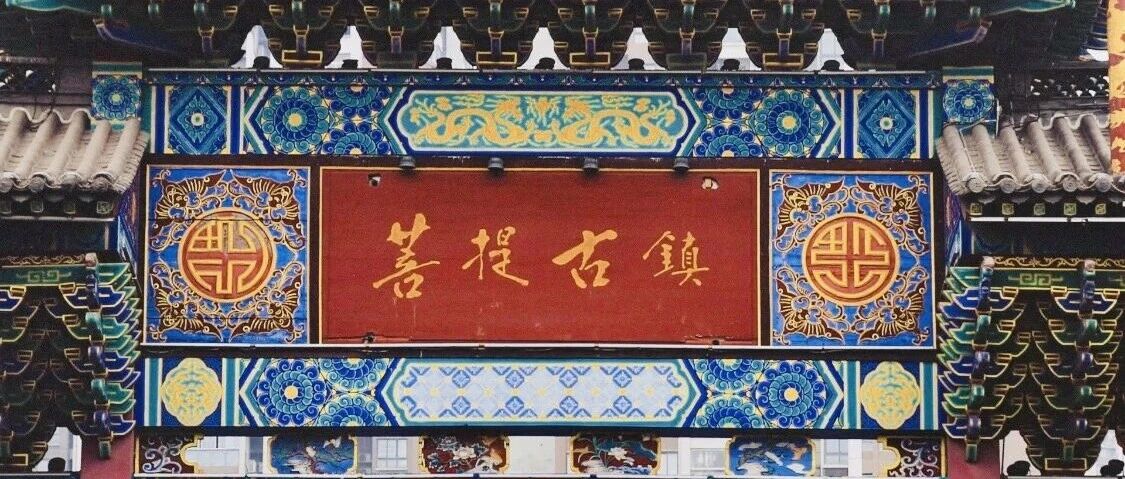 菩提古鎮